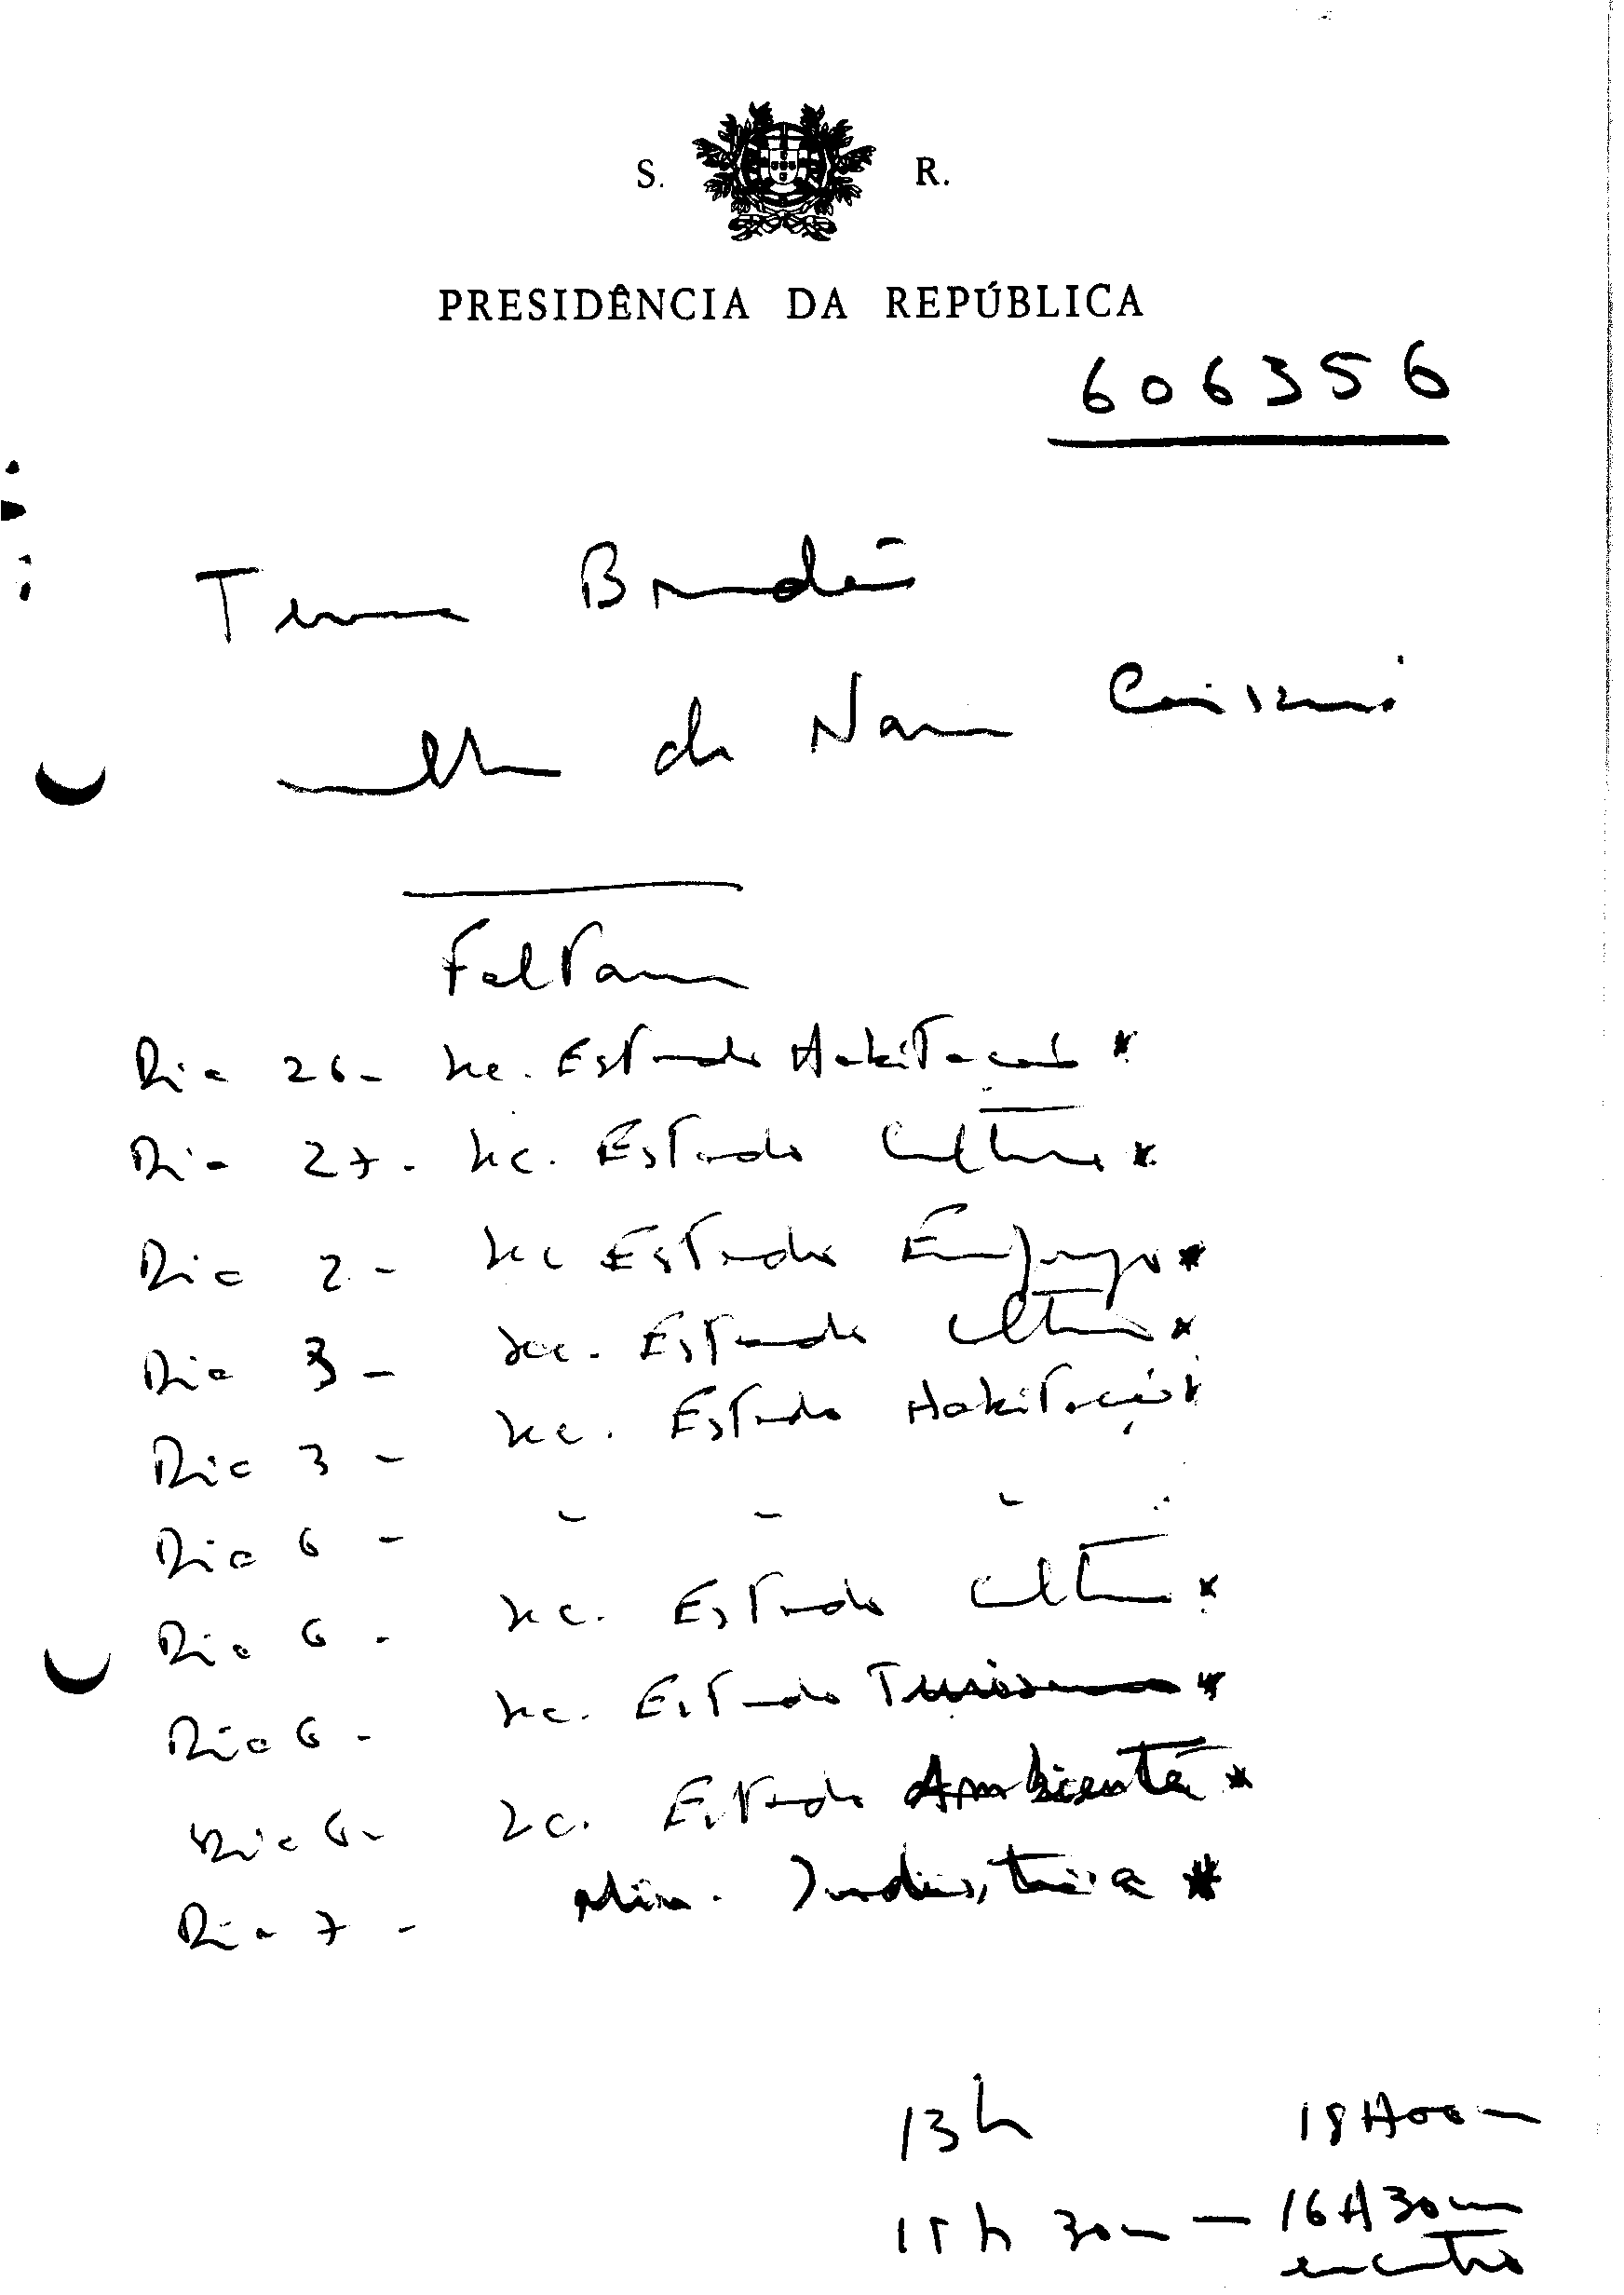 S. R.
PRESIDÊNCIA DA REPÚBLICA
606356
Teresa Brandão
mulher do Nuno
Faltam
Dia 26 - Sec. Estado Habitação *
Dia 27 - Sec. Estado Cultura *
Dia 2 - Sec Estado Emprego *
Dia 3 - Sec. Estado Cultura *
Dia 3 - Sec. Estado Habitação *
Dia 6 - " " " "
Dia 6 - Sec. Estado Cultura *
Dia 6 - Sec. Estado Turismo *
Dia 6 - Sec. Estado Ambiente *
Dia 7 - Min. Indústria *
13h 18H00m
15h 30m - 16H30m
encontro